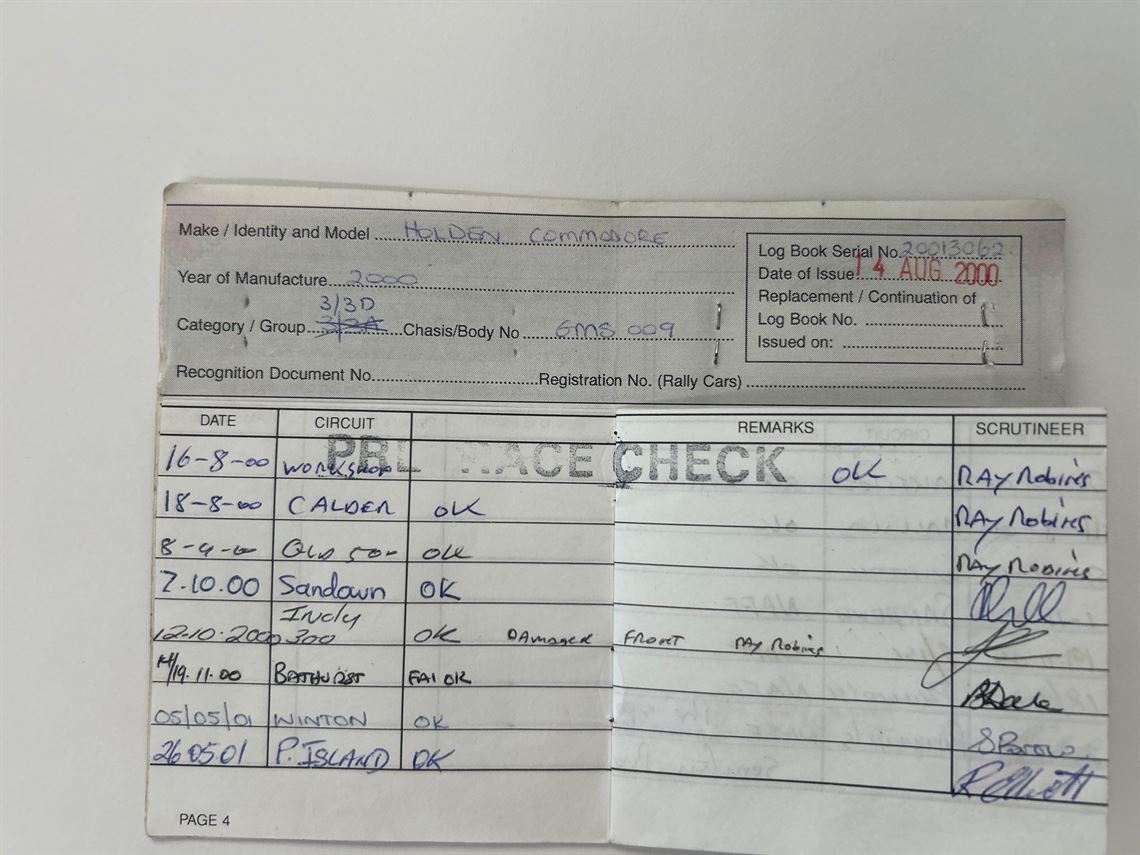 Make / Identity and Model HOLDEN COMMODORE
Log Book Serial No. 20013062
Year of Manufacture 2000
Date of Issue 14 AUG 2000
3/3D
Replacement / Continuation of
Category / Group 3/3A Chasis/Body No GMS 009
Log Book No.
Issued on:
Recognition Document No. Registration No. (Rally Cars)
DATE CIRCUIT REMARKS SCRUTINEER
RACE CHECK
16-8-00 WORKSHOP OK RAY Robins
18-8-00 CALDER OK RAY Robins
8-9-00 QLD 500 OK RAY Robins
7.10.00 Sandown OK
12-10-2000 Indy 300 OK DAMAGED FRONT RAY Robins
19.11.00 BATHURST FAI OK
05/05/01 WINTON OK
26 05 01 P. ISLAND OK R Elliott
PAGE 4